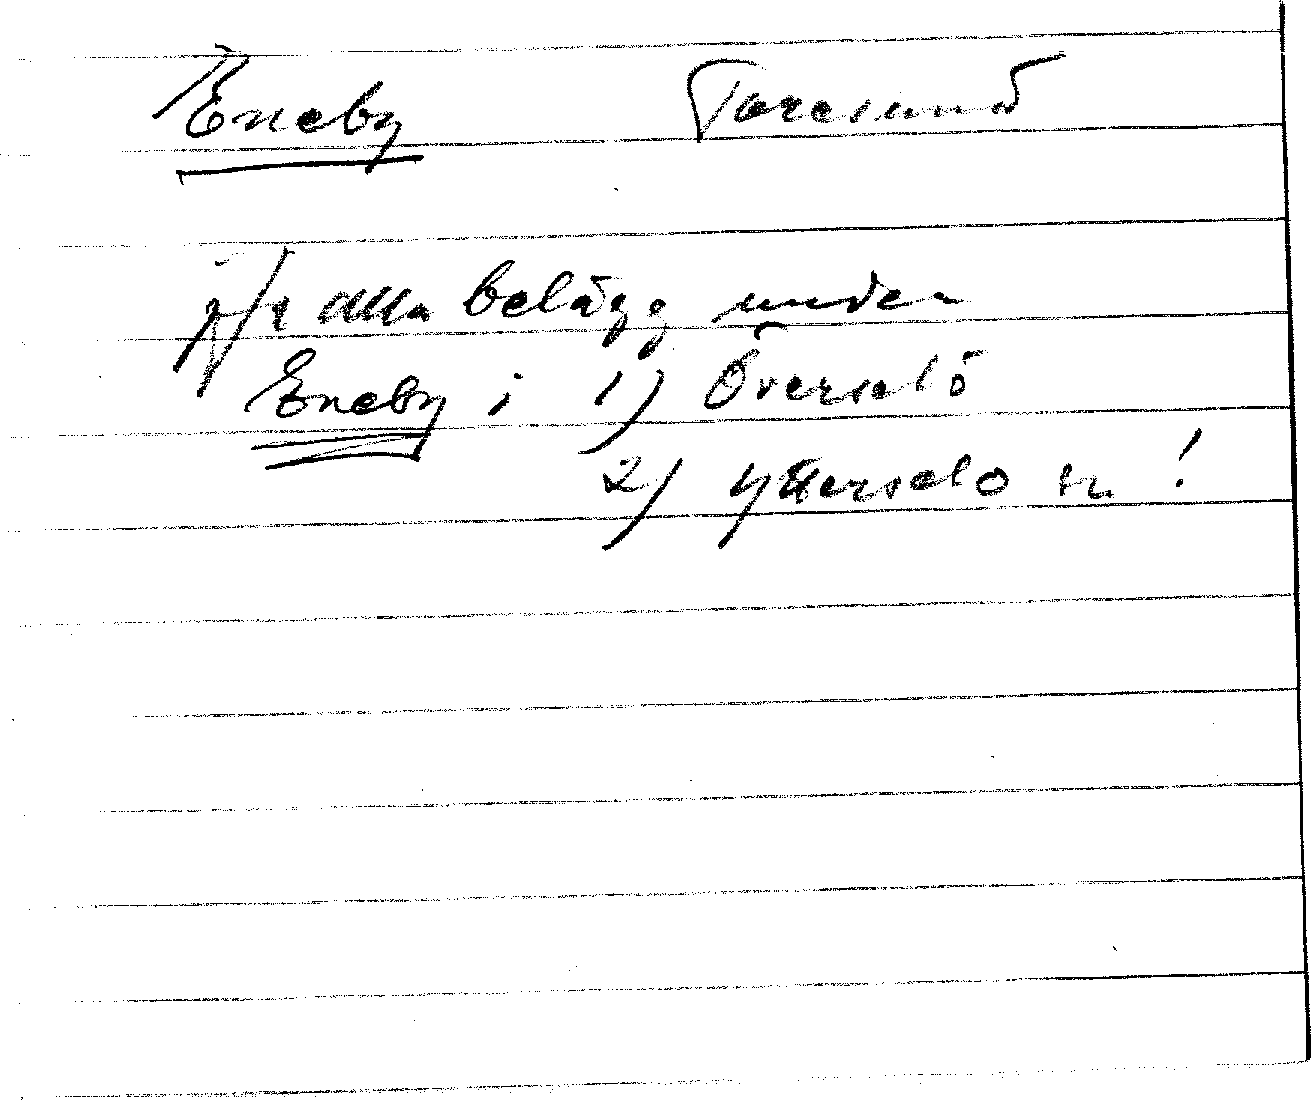 Eneby Toresund
Jfr alla belägg under
Eneby i 1) Överselö
2) Ytterselö sn!